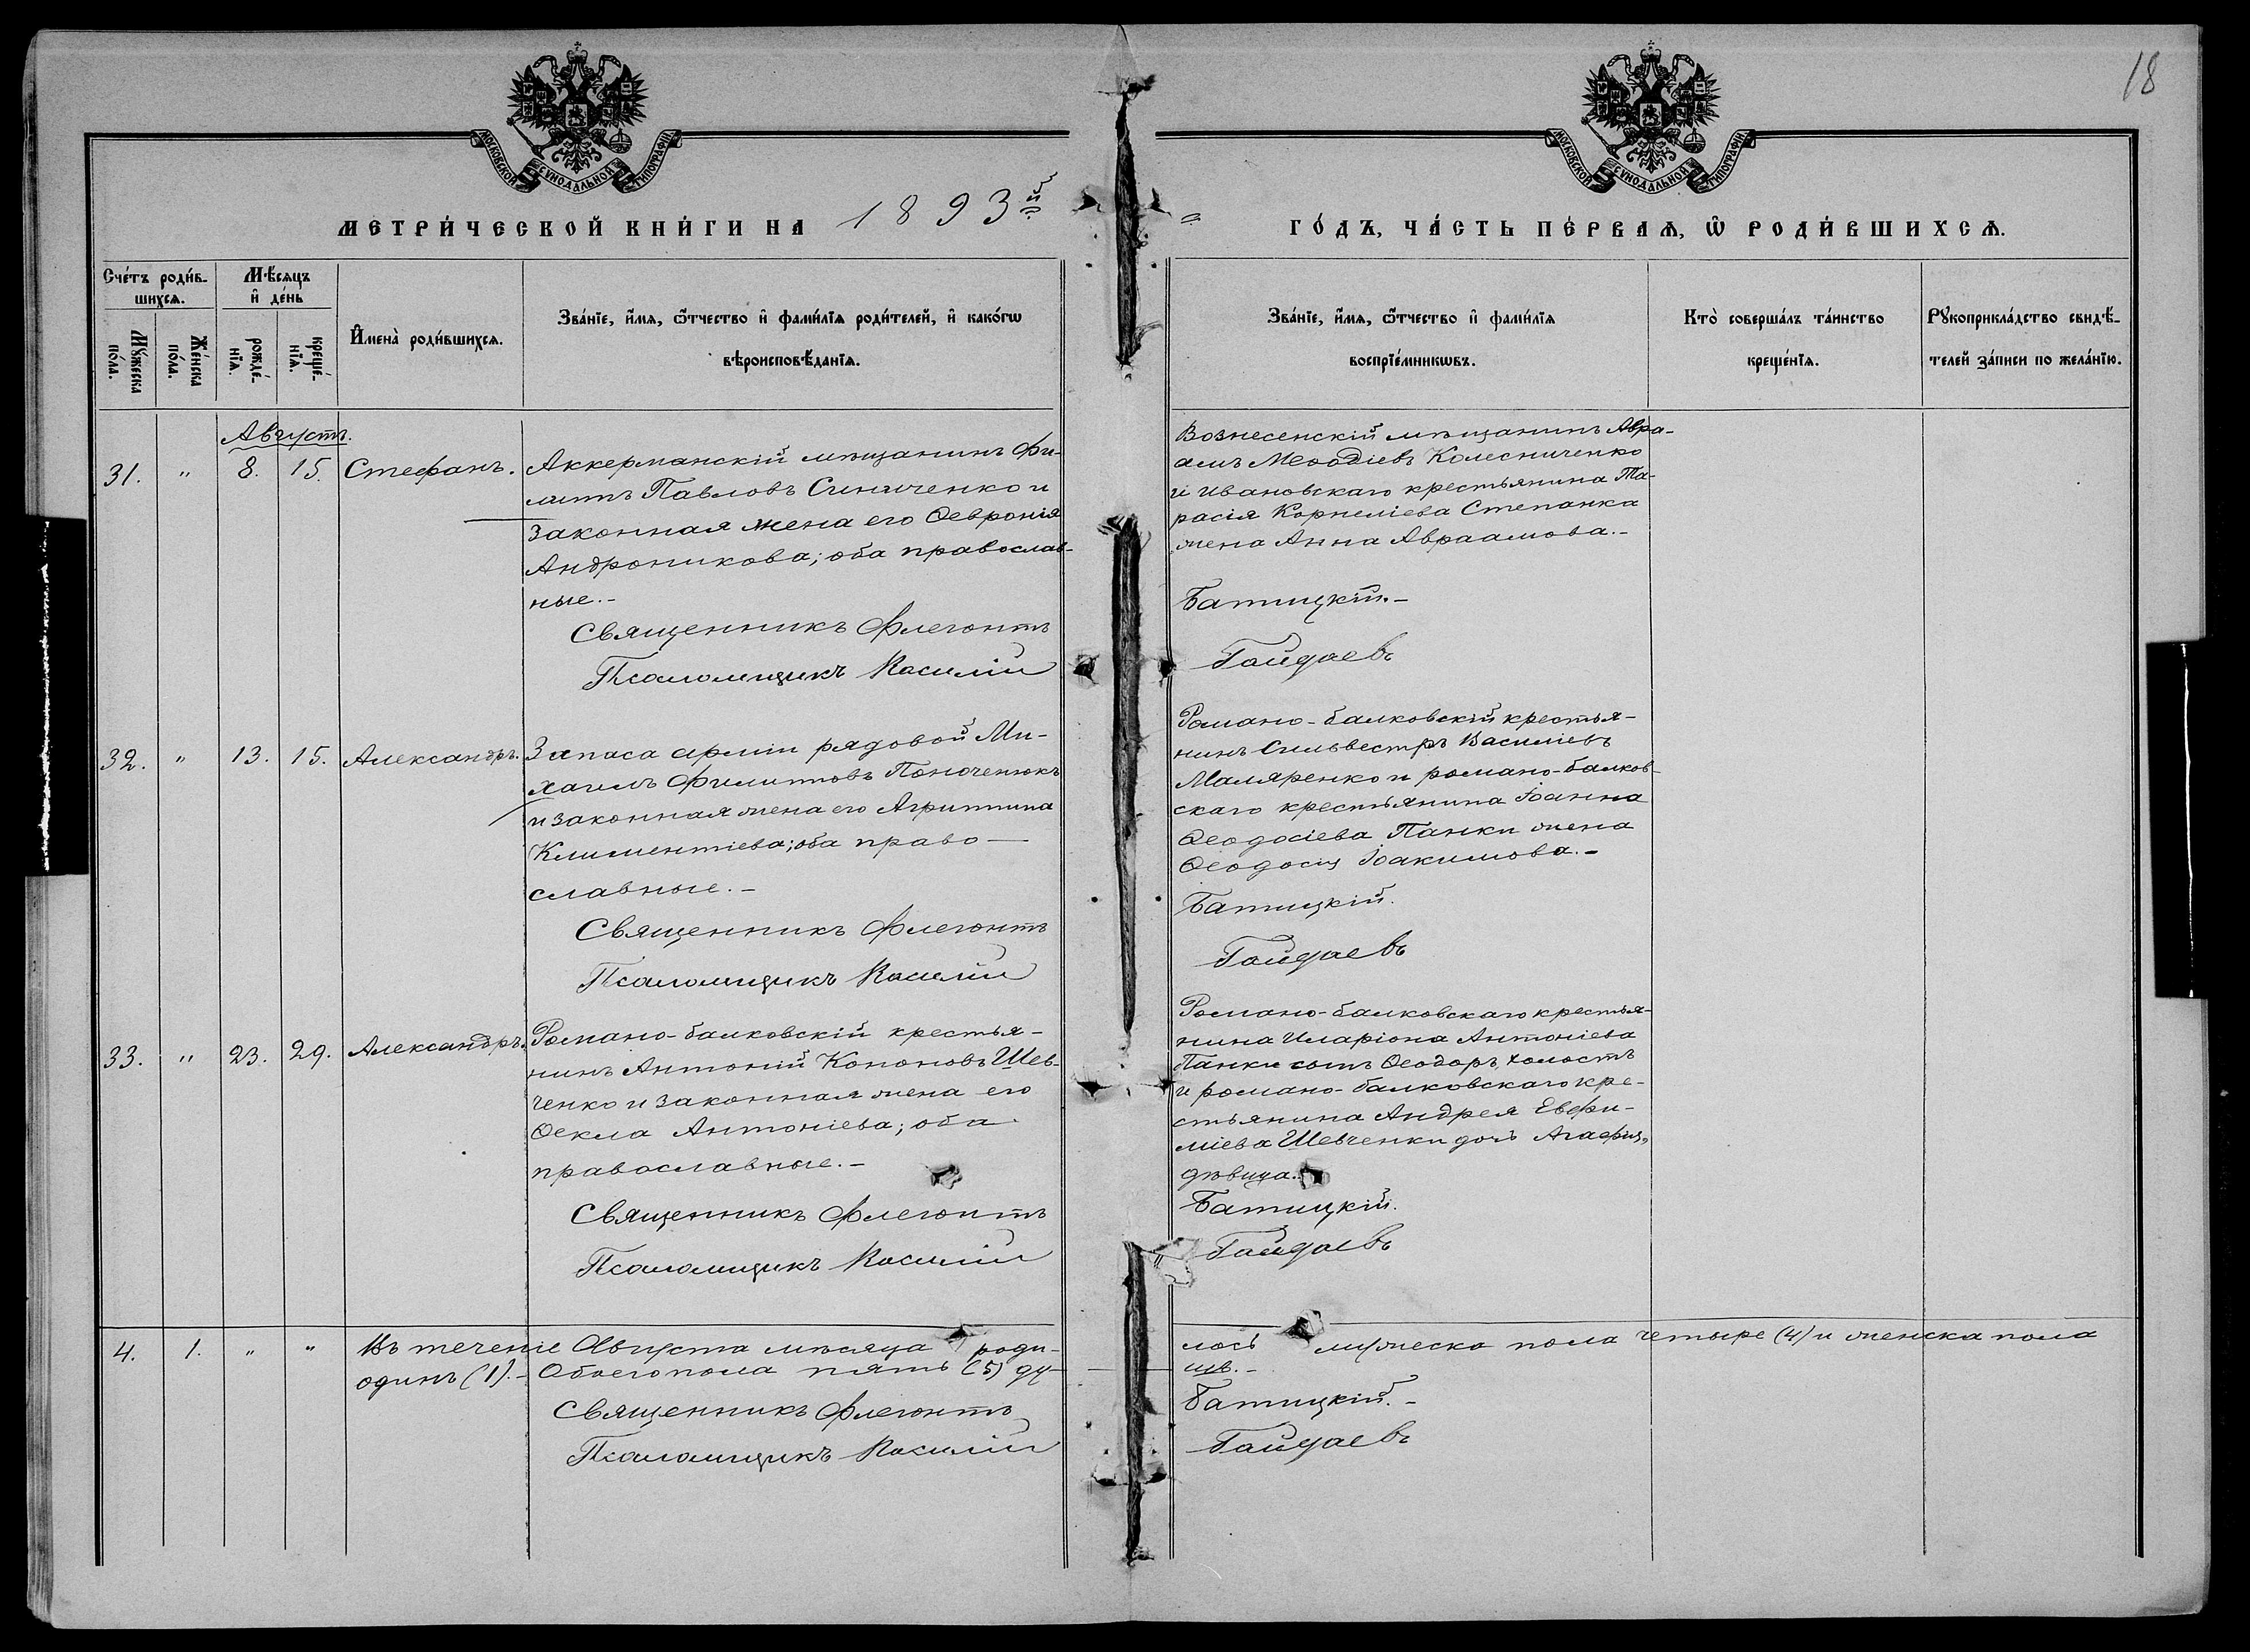 18
МОСКОВСКОЙ СѴНОДАЛЬНОЙ ТИПОГРАФІИ
МОСКОВСКОЙ СѴНОДАЛЬНОЙ ТИПОГРАФІИ
МЕТРИ́ЧЕСКОЙ КНИ́ГИ НА 1893й
ГО́ДЪ, ЧА́СТЬ ПЕ́РВАѦ, Ѡ҆ РОДИ́ВШИХСѦ.
Сче́тъ роди́в-
шихсѧ.
Мꙋ́жеска по́ла.
Же́нска по́ла.
Мѣ́сѧцъ
и҆ де́нь
рожде́-
нїѧ.
креще́-
нїѧ.
И҆мена̀ роди́вшихсѧ.
Зва́нїе, и҆́мѧ, ѻ҆́тчество и҆ фами́лїѧ роди́телей, и҆ како́гѡ
вѣроисповѣ́данїѧ.
Зва́нїе, и҆́мѧ, ѻ҆́тчество и҆ фами́лїѧ
воспрїе́мникѡвъ.
Кто̀ соверша́лъ та́инство
креще́нїѧ.
Рꙋкоприкла́дство свидѣ́-
телей за́писи по жела́нїю.
Августъ.
31. " 8. 15. Стефанъ.
Аккерманскій мѣщанинъ Фи-
липпъ Павловъ Синиченко и
законная жена его Ѳевронія
Андроникова; оба православ-
ные.-
Священникъ Флегонтъ
Псаломщикъ Василій
Вознесенскій мѣщанинъ Авра-
амъ Меѳодіевъ Колесниченко
и Ивановскаго крестьянина Та-
расія Корнеліева Степанка
жена Анна Авраамова.-
Батицкій.-
Гайдаевъ
32. " 13. 15. Александръ.
Запаса арміи рядовой Ми-
хаилъ Филипповъ Поноченюкъ
и законная жена его Агриппина
Климентіева; оба право-
славные.-
Священникъ Флегонтъ
Псаломщикъ Василій
Романо-балковскій крестья-
нинъ Сильвестръ Василіевъ
Маляренко и романо-балков-
скаго крестьянина Іоанна
Ѳеодосіева Панки жена
Ѳеодосія Іоакимова.-
Батицкій.
Гайдаевъ
33. " 23. 29. Александръ.
Романо-балковскій крестья-
нинъ Антоній Кононовъ Шев-
ченко и законная жена его
Ѳекла Антоніева; оба
православные.-
Священникъ Флегонтъ
Псаломщикъ Василій
Романо-балковскаго крестья-
нина Иларіона Антоніева
Панки сынъ Ѳеодоръ, холостъ
и романо-балковскаго кре-
стьянина Андрея Евфи-
міева Шевченки дочь Агафія,
дѣвица.
Батицкій.
Гайдаевъ
4. 1. " " Въ теченіе Августа мѣсяца роди-
лось мужеска пола четыре (4) и женска пола
одинъ (1).- Обоего пола пять (5) ду-
шъ.-
Священникъ Флегонтъ
Батицкій.-
Псаломщикъ Василій
Гайдаевъ